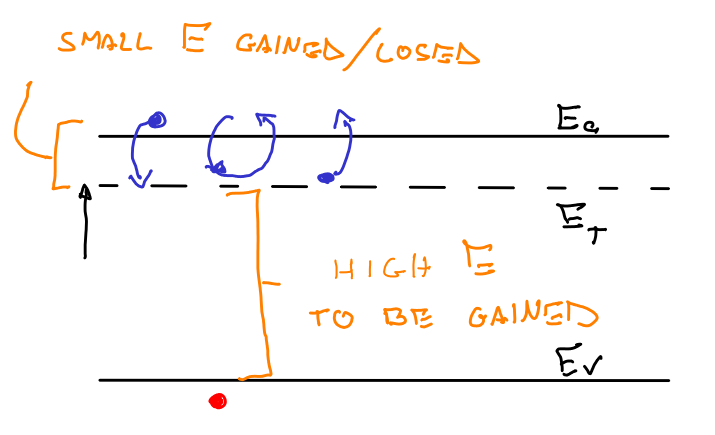 SMALL E GAINED/LOSED
Ec
ET
HIGH E
TO BE GAINED
Ev